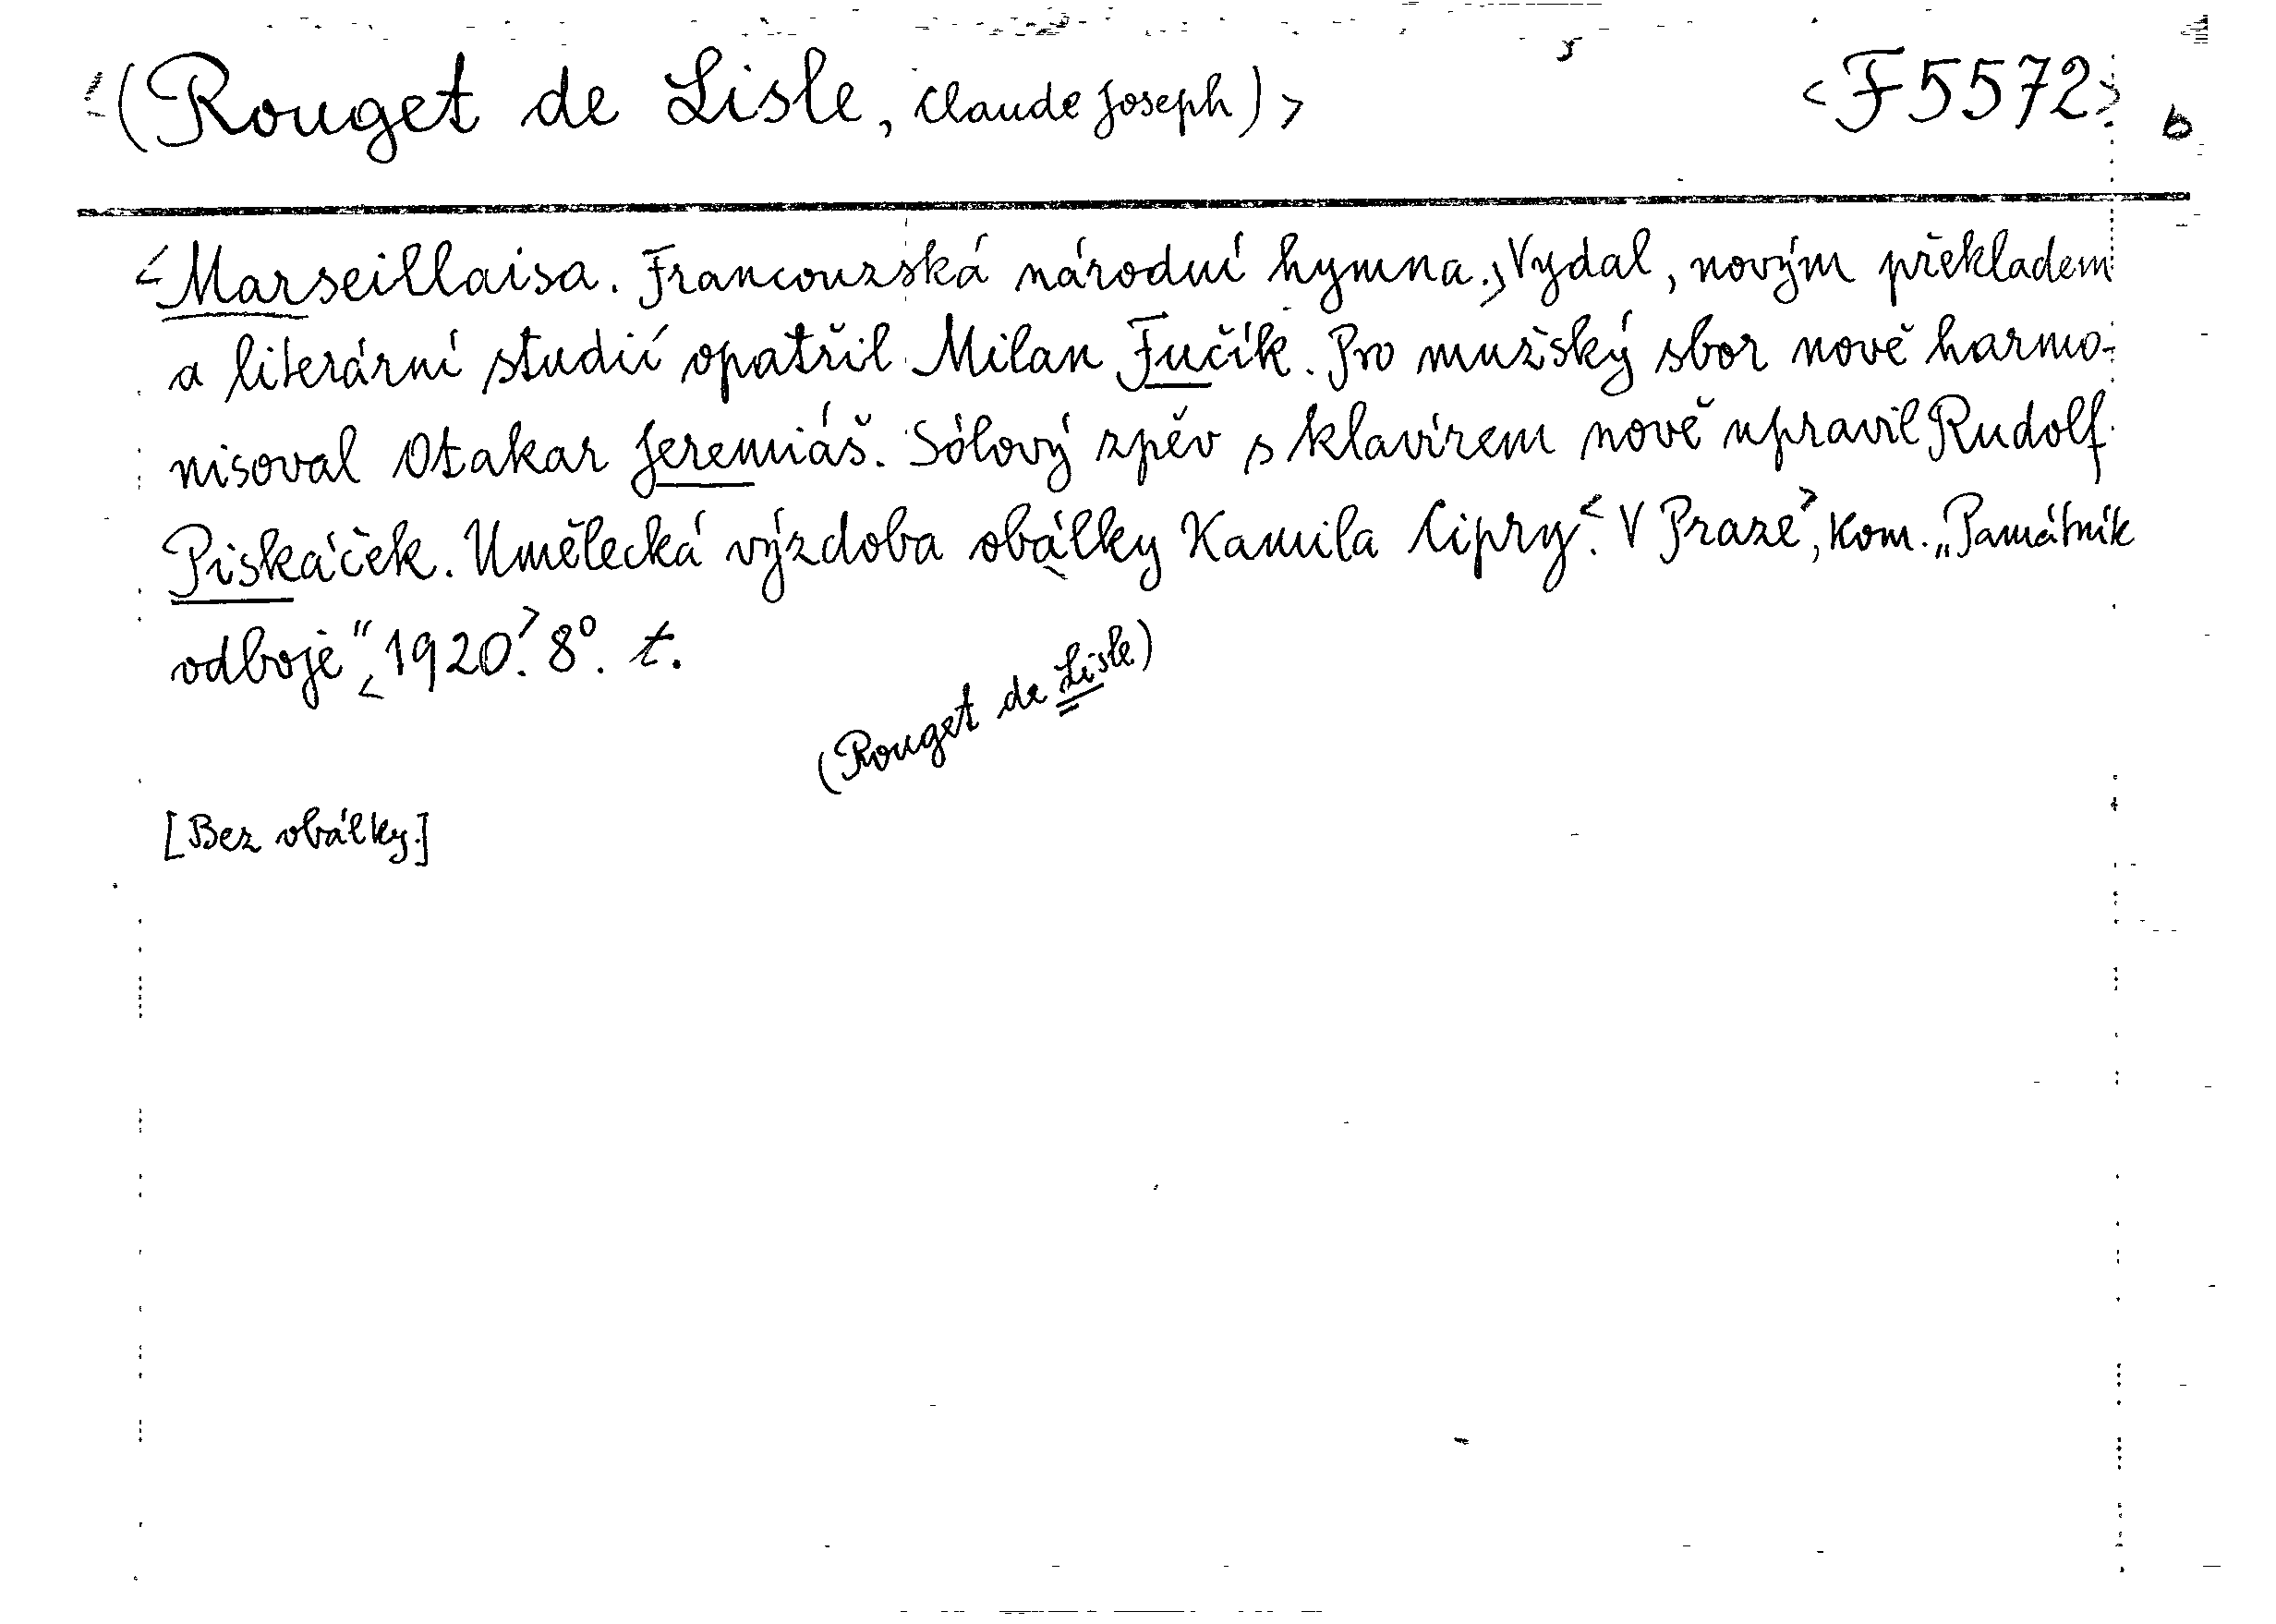 <(Rouget de Lisle, Claude Joseph)> <F5572> b
<Marseillaisa. Francouzská národní hymna.> Vydal, novým překladem
a literární studií opatřil Milan Fučík. Pro mužský sbor nově harmo-
nisoval Otakar Jeremiáš. Sólový zpěv s klavírem nově upravil Rudolf
Piskáček. Umělecká výzdoba obálky Kamila Cipry. <V Praze>, Kom. „Památník
odboje" <1920.> 8°. t.
(Rouget de Lisle)
[Bez obálky.]